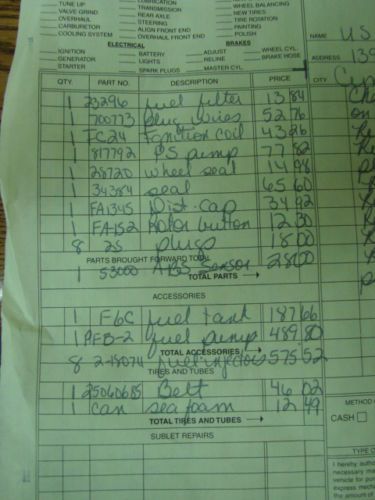 TUNE UP
VALVE GRIND
OVERHAUL
CARBURETOR
COOLING SYSTEM
LUBRICATION
TRANSMISSION
REAR AXLE
STEERING
ALIGN FRONT END
OVERHAUL FRONT END
WHEEL BALANCING
NEW TIRES
TIRE ROTATION
PAINTING
POLISH
ELECTRICAL BRAKES
IGNITION BATTERY ADJUST WHEEL CYL.
GENERATOR LIGHTS RELINE BRAKE HOSE
STARTER SPARK PLUGS MASTER CYL.
NAME US
ADDRESS 139
CITY
QTY. PART NO. DESCRIPTION PRICE
1 23296 fuel filter 13 84
1 700773 plug wires 52 76
1 FC24 Ignition coil 43 26
1 817792 PS pump 77 82
1 28720 wheel seal 14 98
1 34384 seal 65 60
1 FA1345 Dist. cap 34 92
1 FA-152 Rotor button 12 30
8 25 plugs 18 00
PARTS BROUGHT FORWARD TOTAL
1 53000 ABS sensor 28 00
TOTAL PARTS
ACCESSORIES
1 F6C fuel tank 187 66
1 PFB-2 fuel pump 489 80
TOTAL ACCESSORIES
8 2-18074 fuel injectors 575 52
TIRES AND TUBES
1 25060685 Belt 46 02
1 can seafoam 12 49
TOTAL TIRES AND TUBES
SUBLET REPAIRS
METHOD
CASH
TYPE
I hereby autho
necessary ma
vehicle for pur
express mecha
the amount of